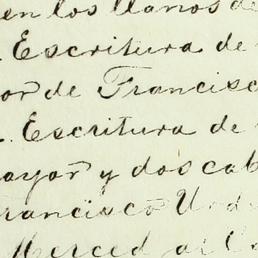 en los llanos de
Escritura de
or de Francisc
Escritura de
ayor y dos cab
Francisco
Merced